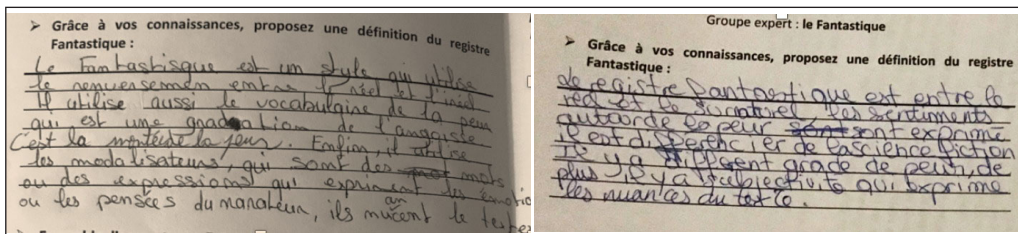 ➤ Grâce à vos connaissances, proposez une définition du registre
Fantastique :
Le Fantastique est un style qui utilise
le renversemen entre l'réel et l'iréel
Il utilise aussi le vocabulaire de la peur
qui est une gradation de l'angoisse
C'est la montée de la peur. Enfin, il utilise
les modalisateurs, qui sont des mots
ou des expressions qui expriment les émotio
ou les pensées du narrateur, ils nuancent le texte
Groupe expert : le Fantastique
➤ Grâce à vos connaissances, proposez une définition du registre
Fantastique :
Le registre Fantastique est entre le
réel et le surnaturel les sentiments
autour de peur sont exprimé
il est différencier de la science fiction
Il y a different grade de peur, de
plus, il y a subjectivité qui exprime
les nuances du texte.